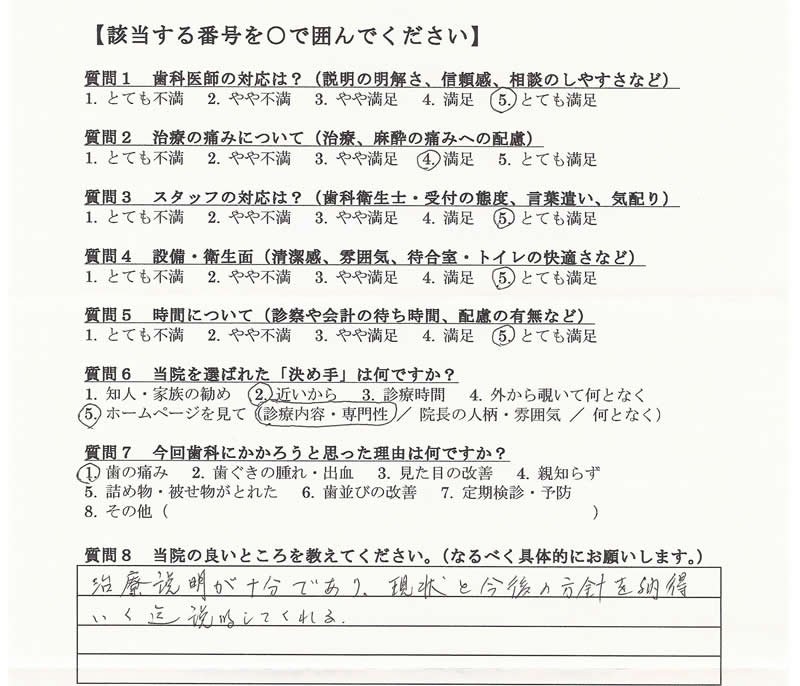 【該当する番号を〇で囲んでください】
質問１　歯科医師の対応は？（説明の明解さ、信頼感、相談のしやすさなど）
1. とても不満　2. やや不満　3. やや満足　4. 満足　5. とても満足
質問２　治療の痛みについて（治療、麻酔の痛みへの配慮）
1. とても不満　2. やや不満　3. やや満足　4. 満足　5. とても満足
質問３　スタッフの対応は？（歯科衛生士・受付の態度、言葉遣い、気配り）
1. とても不満　2. やや不満　3. やや満足　4. 満足　5. とても満足
質問４　設備・衛生面（清潔感、雰囲気、待合室・トイレの快適さなど）
1. とても不満　2. やや不満　3. やや満足　4. 満足　5. とても満足
質問５　時間について（診察や会計の待ち時間、配慮の有無など）
1. とても不満　2. やや不満　3. やや満足　4. 満足　5. とても満足
質問６　当院を選ばれた「決め手」は何ですか？
1. 知人・家族の勧め　2. 近いから　3. 診療時間　4. 外から覗いて何となく
5. ホームページを見て（診療内容・専門性 ／ 院長の人柄・雰囲気 ／ 何となく）
質問７　今回歯科にかかろうと思った理由は何ですか？
1. 歯の痛み　2. 歯ぐきの腫れ・出血　3. 見た目の改善　4. 親知らず
5. 詰め物・被せ物がとれた　6. 歯並びの改善　7. 定期検診・予防
8. その他（　　　　　　　　　　　　　　　　　　　　）
質問８　当院の良いところを教えてください。（なるべく具体的にお願いします。）
治療説明が十分であり、現状と今後の方針を納得
いく迄説明してくれる。